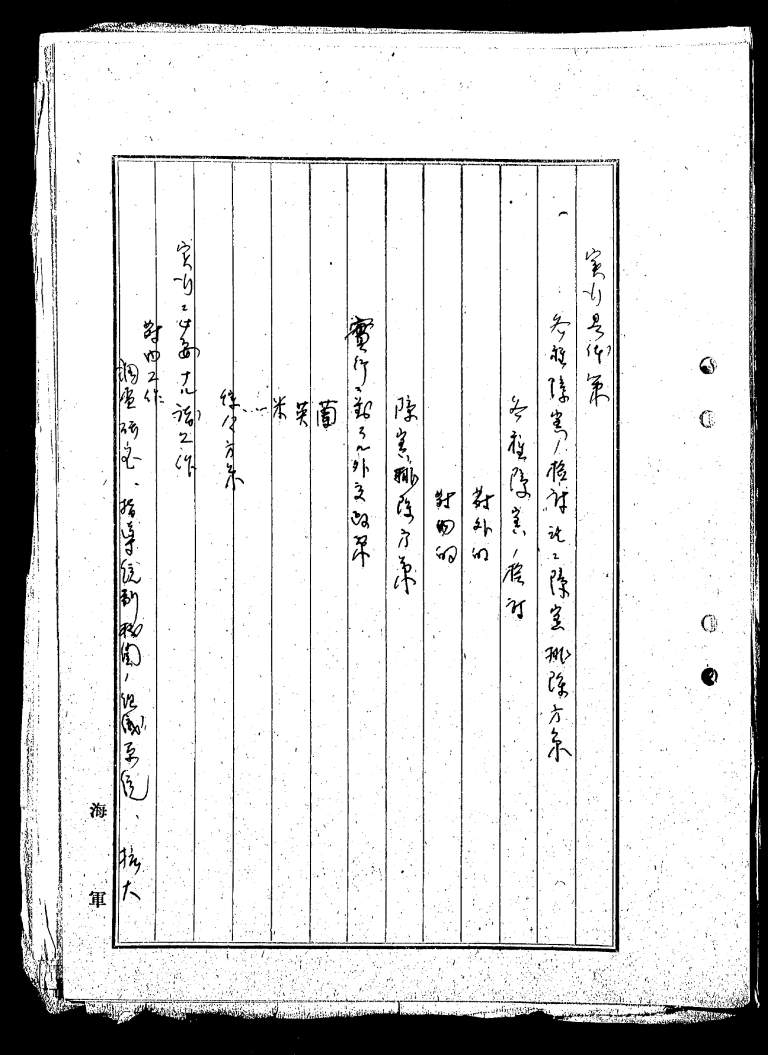 実行具体策
各種障害ノ検討並ニ障害排除方策
各種障害ノ検討
対外的
対内的
障害排除方策
実行ニ対スル外交政策
蘭
英
米
……
方策
実行ニ必要ナル諸工作
対内工作
調査研究、指導統制機関ノ組織系統、拡大
海軍